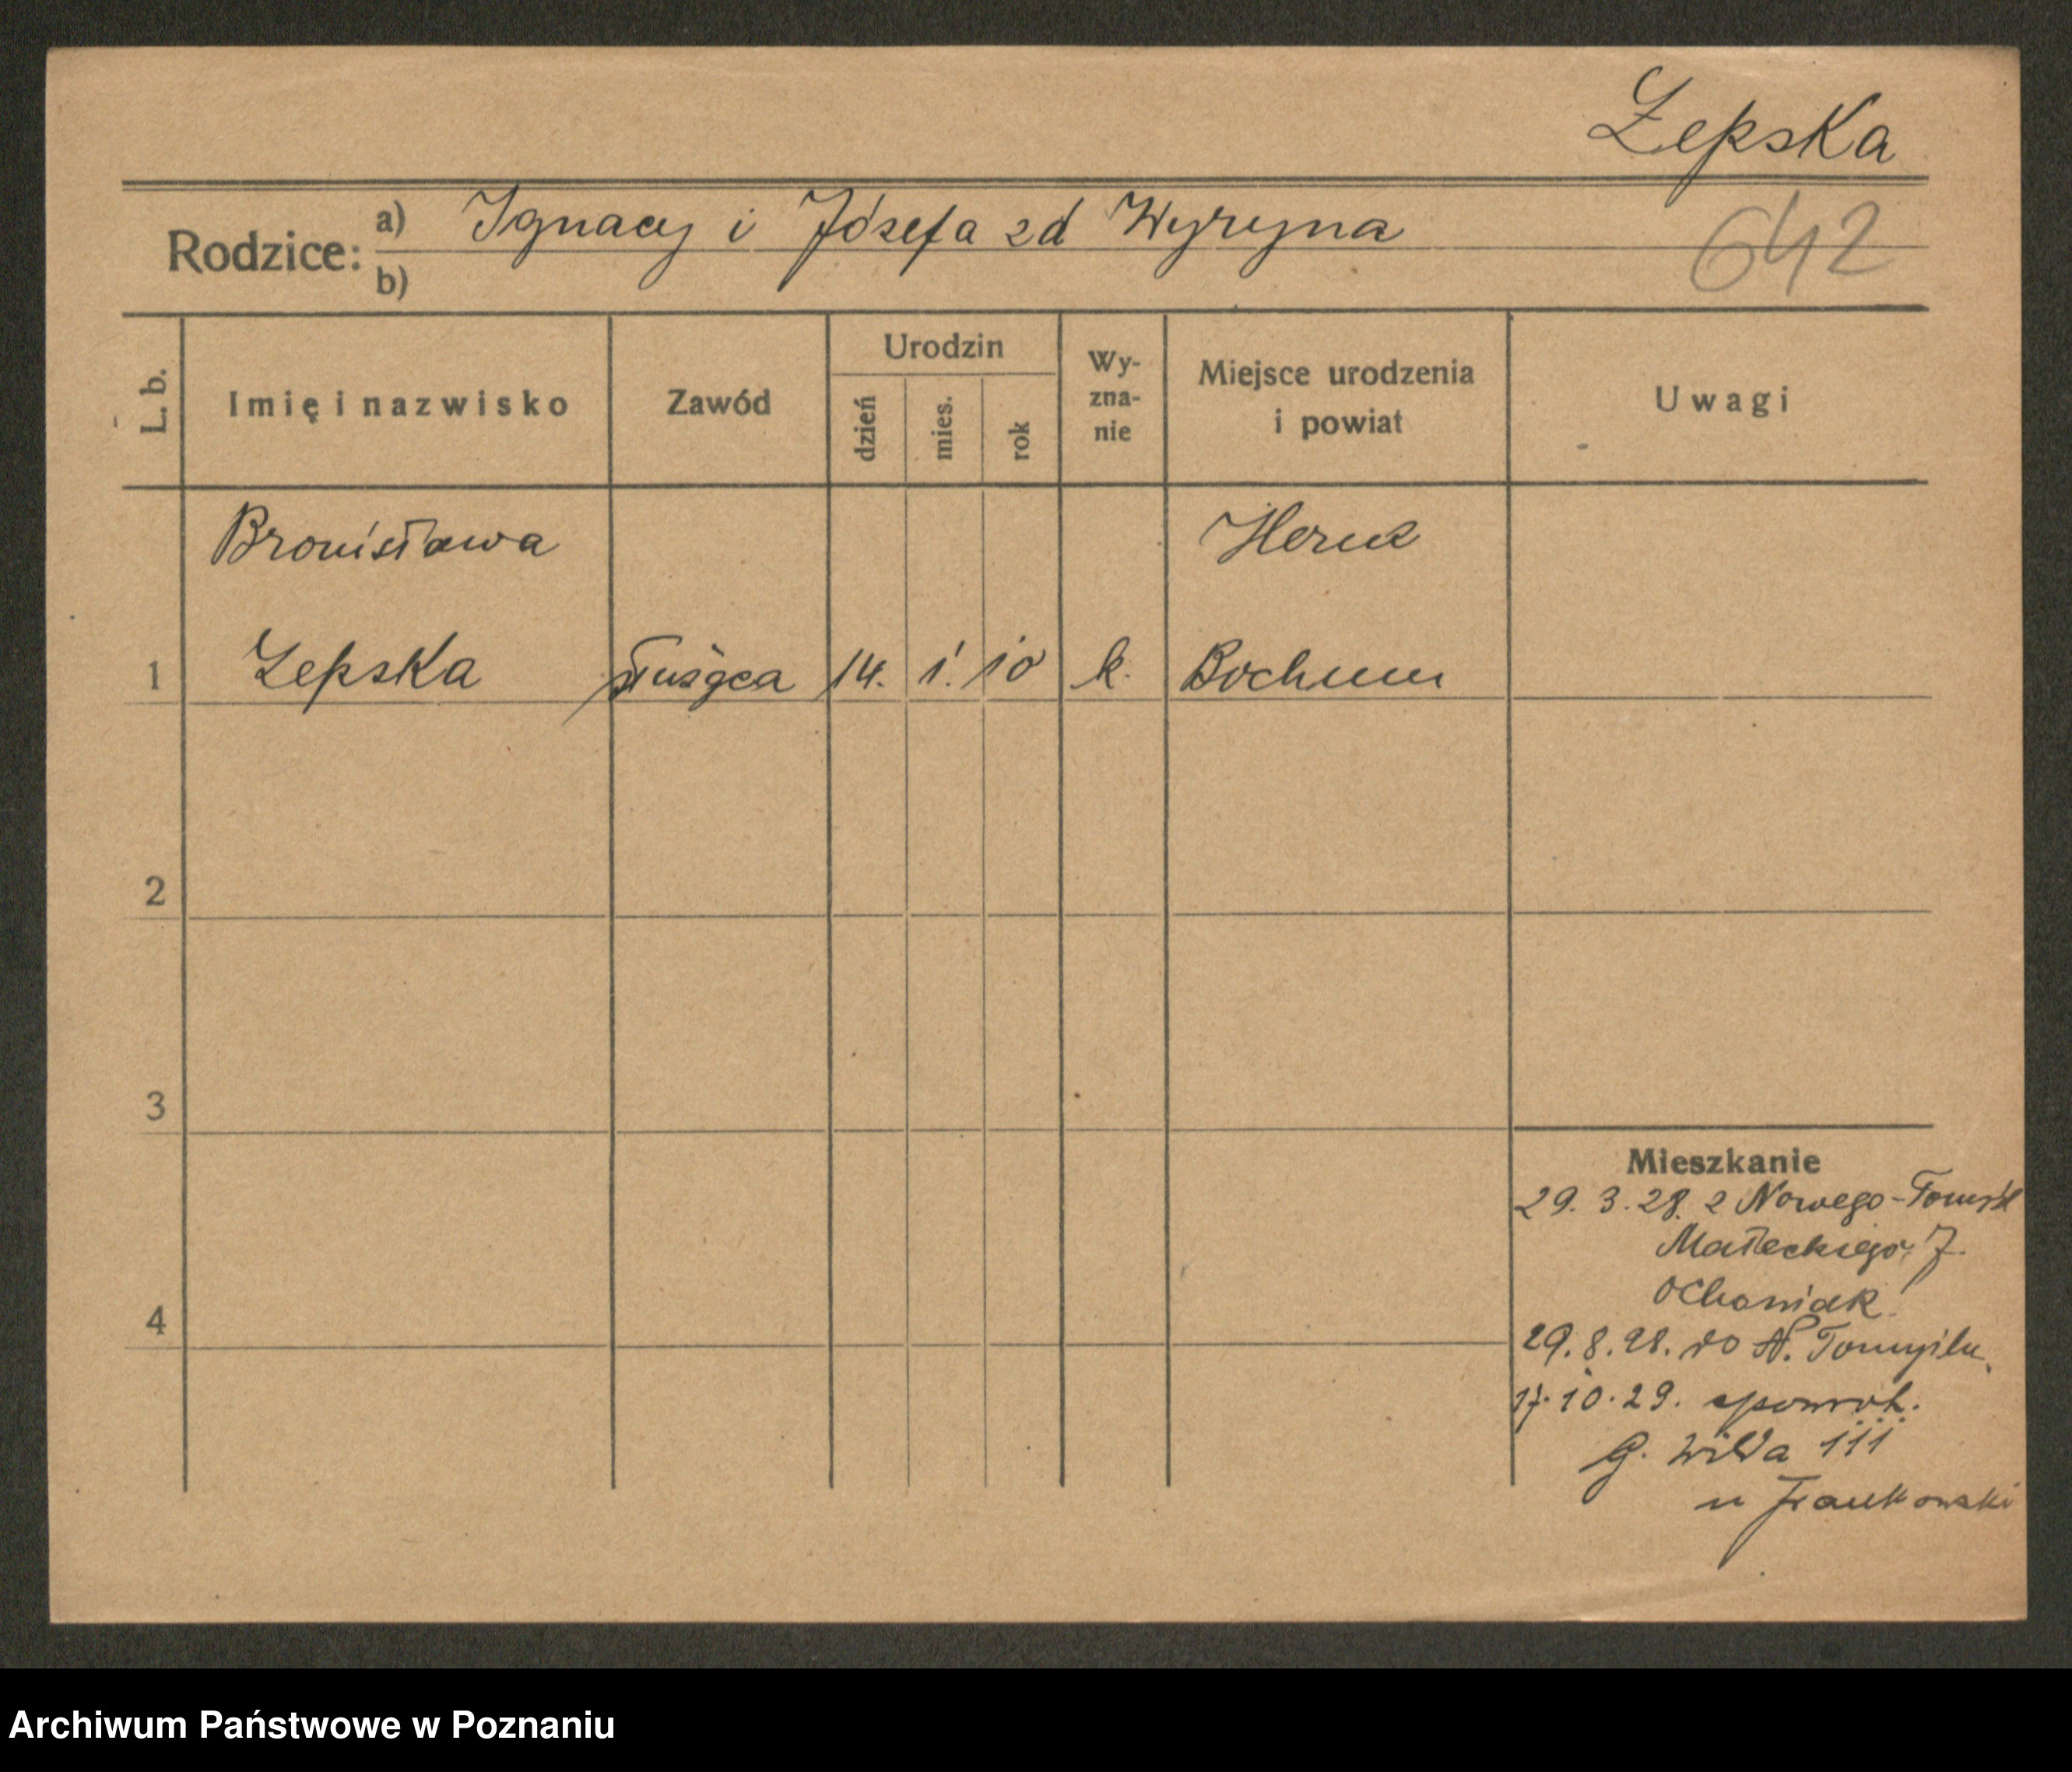 Łepska
Rodzice: a) Ignacy i Józefa zd Wyryna
b)
642
L. b. Imię i nazwisko Zawód Urodzin dzień mies. rok Wy-zna-nie Miejsce urodzenia i powiat Uwagi
Bronisława Herne
1 Łepska służąca 14. 1. 10 k. Bochum
2
3
Mieszkanie
29. 3. 28. z Nowego-Tomyśl
Małeckiego 7.
4
29. 8. 28. do N. Tomyślu
17. 10. 29. spowrot.
G. Wilda 111
u Frankowski
Archiwum Państwowe w Poznaniu